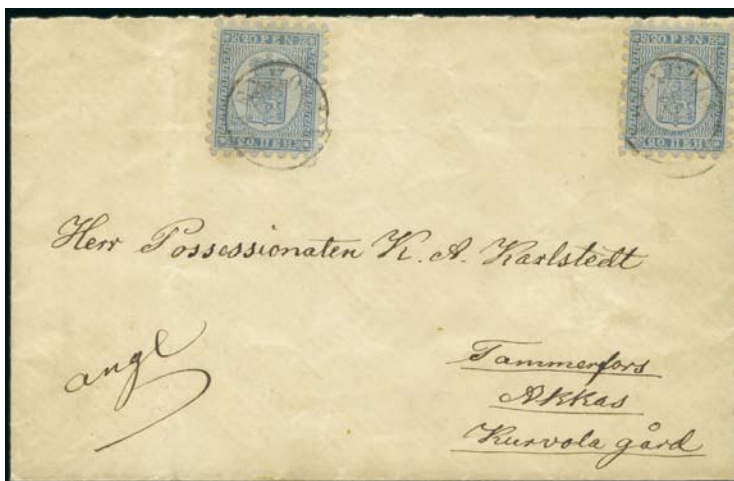 20 PEN 20 PEN
20. ПЕН 20. ПЕН
Herr Possessionaten K. A. Karlstedt
angl
Tammerfors
Akkas
Kurvola gård